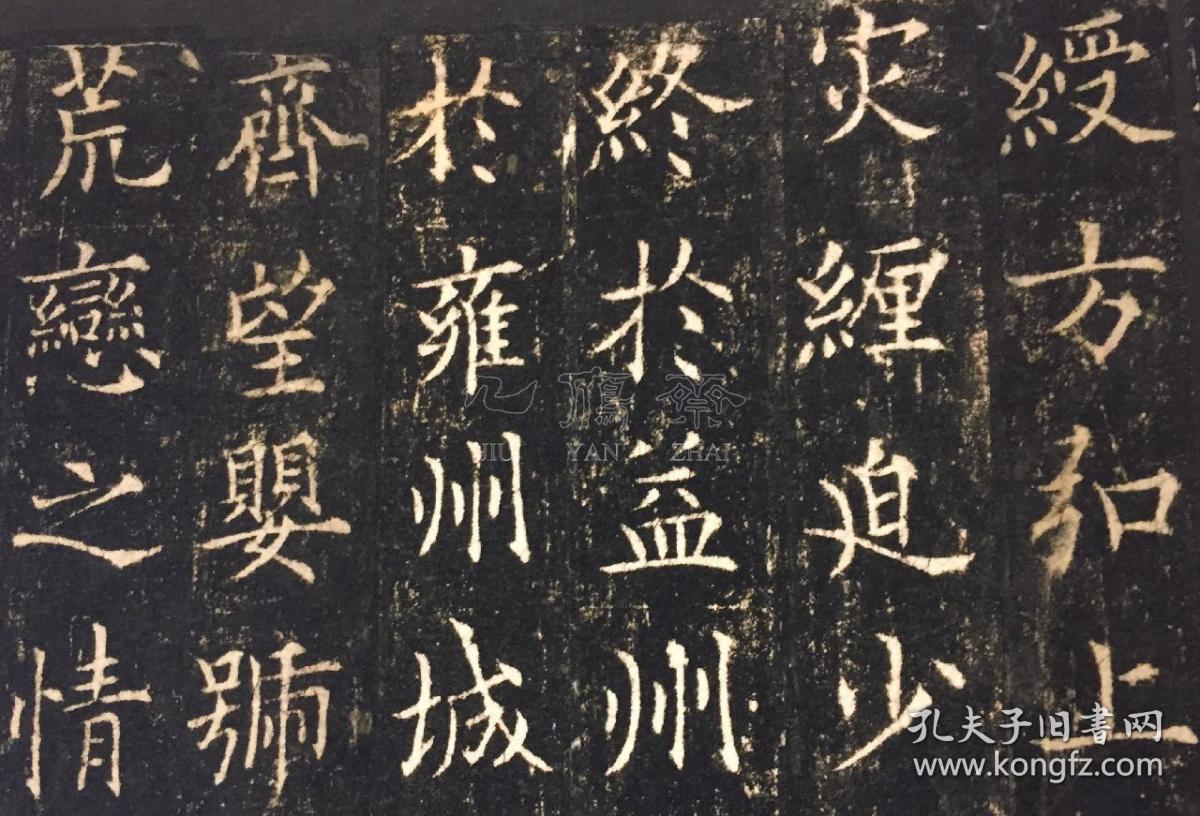 綬方弘上
灾纏迫少
終於益州
於雍州城
齊望嬰號
荒戀之情
JIU YAN ZHAI
孔夫子旧書网
www.kongfz.com